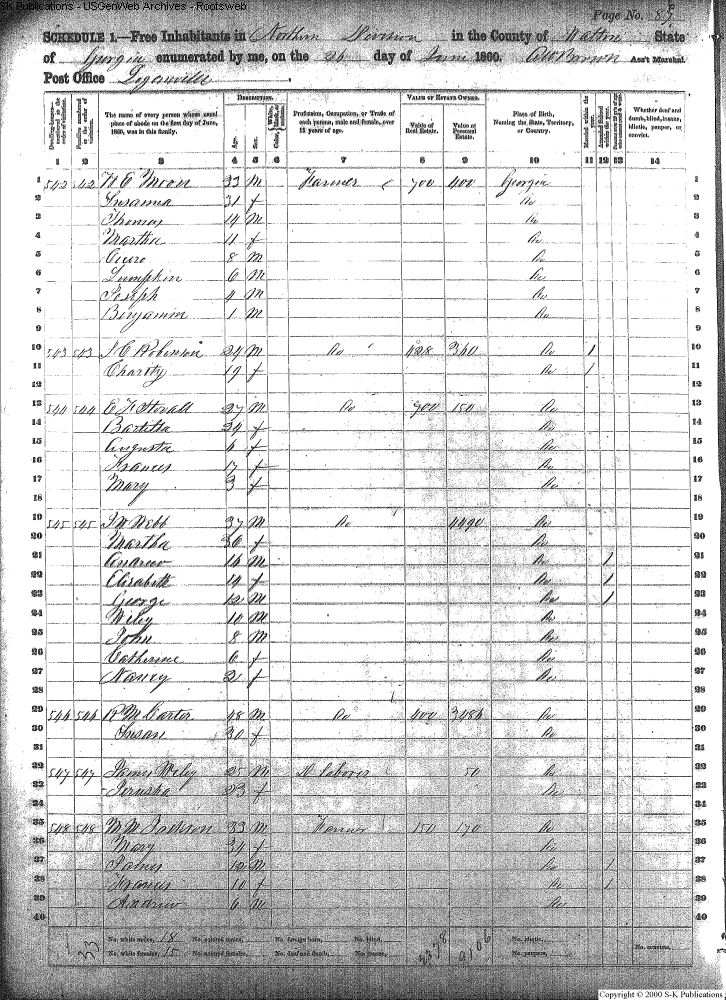 SK Publications - USGenWeb Archives - Rootsweb
Page No. 89
SCHEDULE 1.—Free Inhabitants in Northern Division in the County of Walton State
of Georgia enumerated by me, on the 26 day of June 1860. AW Brown Ass't Marshal.
Post Office Loganville
The name of every person whose usual place of abode on the first day of June, 1860, was in this family.
DESCRIPTION.
Age. Sex. Color,
Profession, Occupation, or Trade of each person, male and female, over 15 years of age.
VALUE OF ESTATE OWNED.
Value of Real Estate. Value of Personal Estate.
Place of Birth, Naming the State, Territory, or Country.
Married within the year.
Whether deaf and dumb, blind, insane, idiotic, pauper, or convict.
1 2 3 4 5 6 7 8 9 10 11 12 13 14
1 542 542 Moon 33 M Farmer 700 400 Georgia 1
2 Susanna 31 f Do 2
3 Thomas 14 M Do 3
4 Martha 11 f Do 4
5 8 M Do 5
6 Lumpkin 6 M Do 6
7 Joseph 4 M Do 7
8 Benjamin 1 M Do 8
9 9
10 543 543 J C Robinson 24 M Do 428 340 Do 1 10
11 Charity 19 f Do 1 11
12 12
13 544 544 Stovall 27 M Do 900 150 Do 13
14 24 f Do 14
15 Augusta 4 f Do 15
16 Frances 17 f Do 16
17 Mary 3 f Do 17
18 18
19 545 545 Webb 37 M Do 4490 Do 19
20 Martha 36 f Do 20
21 Andrew 16 M Do 1 21
22 Elizabeth 14 f Do 1 22
23 George 12 M Do 1 23
24 Wiley 10 M Do 24
25 John 8 M Do 25
26 Catherine 6 f Do 26
27 Nancy 21 f Do 27
28 28
29 546 546 R M Carter 48 M Do 400 3486 Do 29
30 Susan 30 f Do 30
31 31
32 547 547 James Wiley 25 M D laborer 50 Do 32
33 Jerusha 23 f Do 33
34 34
35 548 548 Jackson 33 M Farmer 150 170 Do 35
36 Mary 34 f Do 36
37 James 12 M Do 1 37
38 Francis 10 f Do 1 38
39 Andrew 6 M Do 39
40 40
33 No. white males, 18 No. colored males, No. foreign born, No. blind, 3378 9106 No. idiotic, No. convicts,
No. white females, 15 No. colored females, No. deaf and dumb, No. insane, No. paupers,
Copyright © 2000 S-K Publications